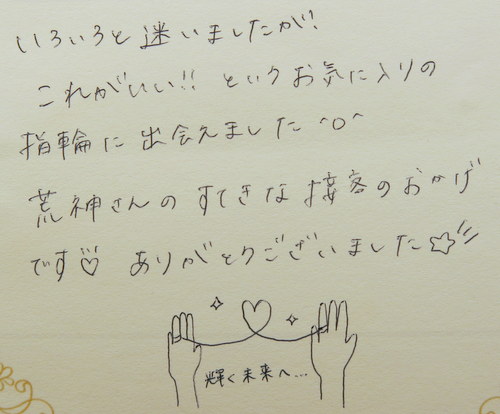 いろいろと迷いましたが!
これがいい!!というお気に入りの
指輪に出会えました^o^
荒神さんのすてきな接客のおかげ
です♡ ありがとうございました☆
輝く未来へ...